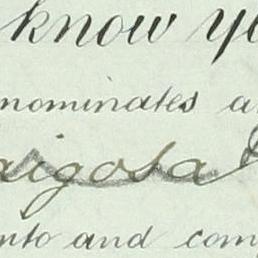 know yo
nominates a
aigosa
nto and com